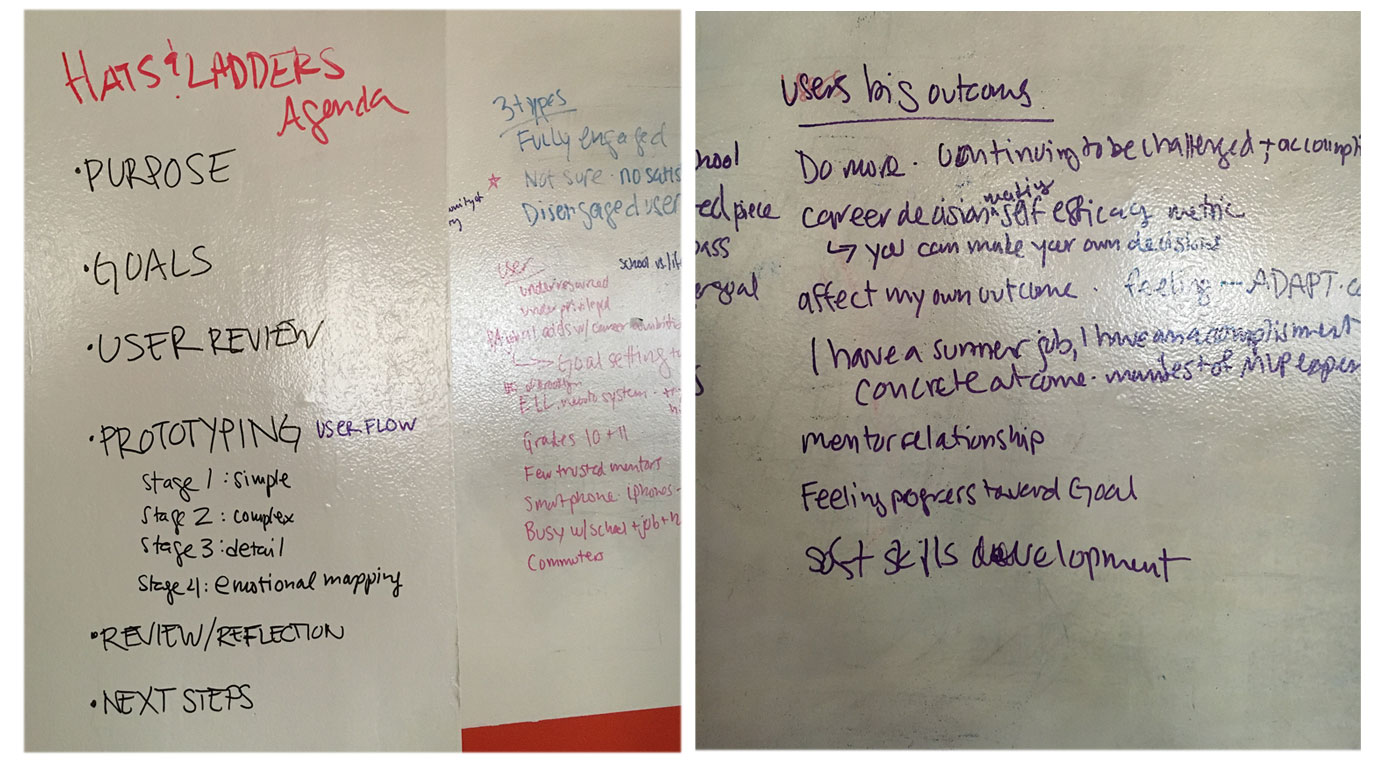 HATS & LADDERS
Agenda
• PURPOSE
• GOALS
• USER REVIEW
• PROTOTYPING USER FLOW
Stage 1 : simple
Stage 2 : complex
Stage 3 : detail
Stage 4 : emotional mapping
• REVIEW/REFLECTION
• NEXT STEPS
3 types
Fully engaged
Not sure - no satis
Disengaged user
users
school vs/
underresourced
underprivileged
adds w/ career ambitio
Goal setting
ELL needs system
Grades 10 + 11
Few trusted mentors
Smartphone iphones -
Busy w/ school + job + h
Commuters
users big outcoms
hool
ed piece
pass
ergoal
Do more. Continuing to be challenged + accompli
career decision making self efficacy metric
↳ you can make your own decisions
affect my own outcome. feeling — ADAPT.
I have a summer job, I have an accomplisment
concrete outcome. of MVP exper
mentor relationship
Feeling progress toward Goal
soft skills development